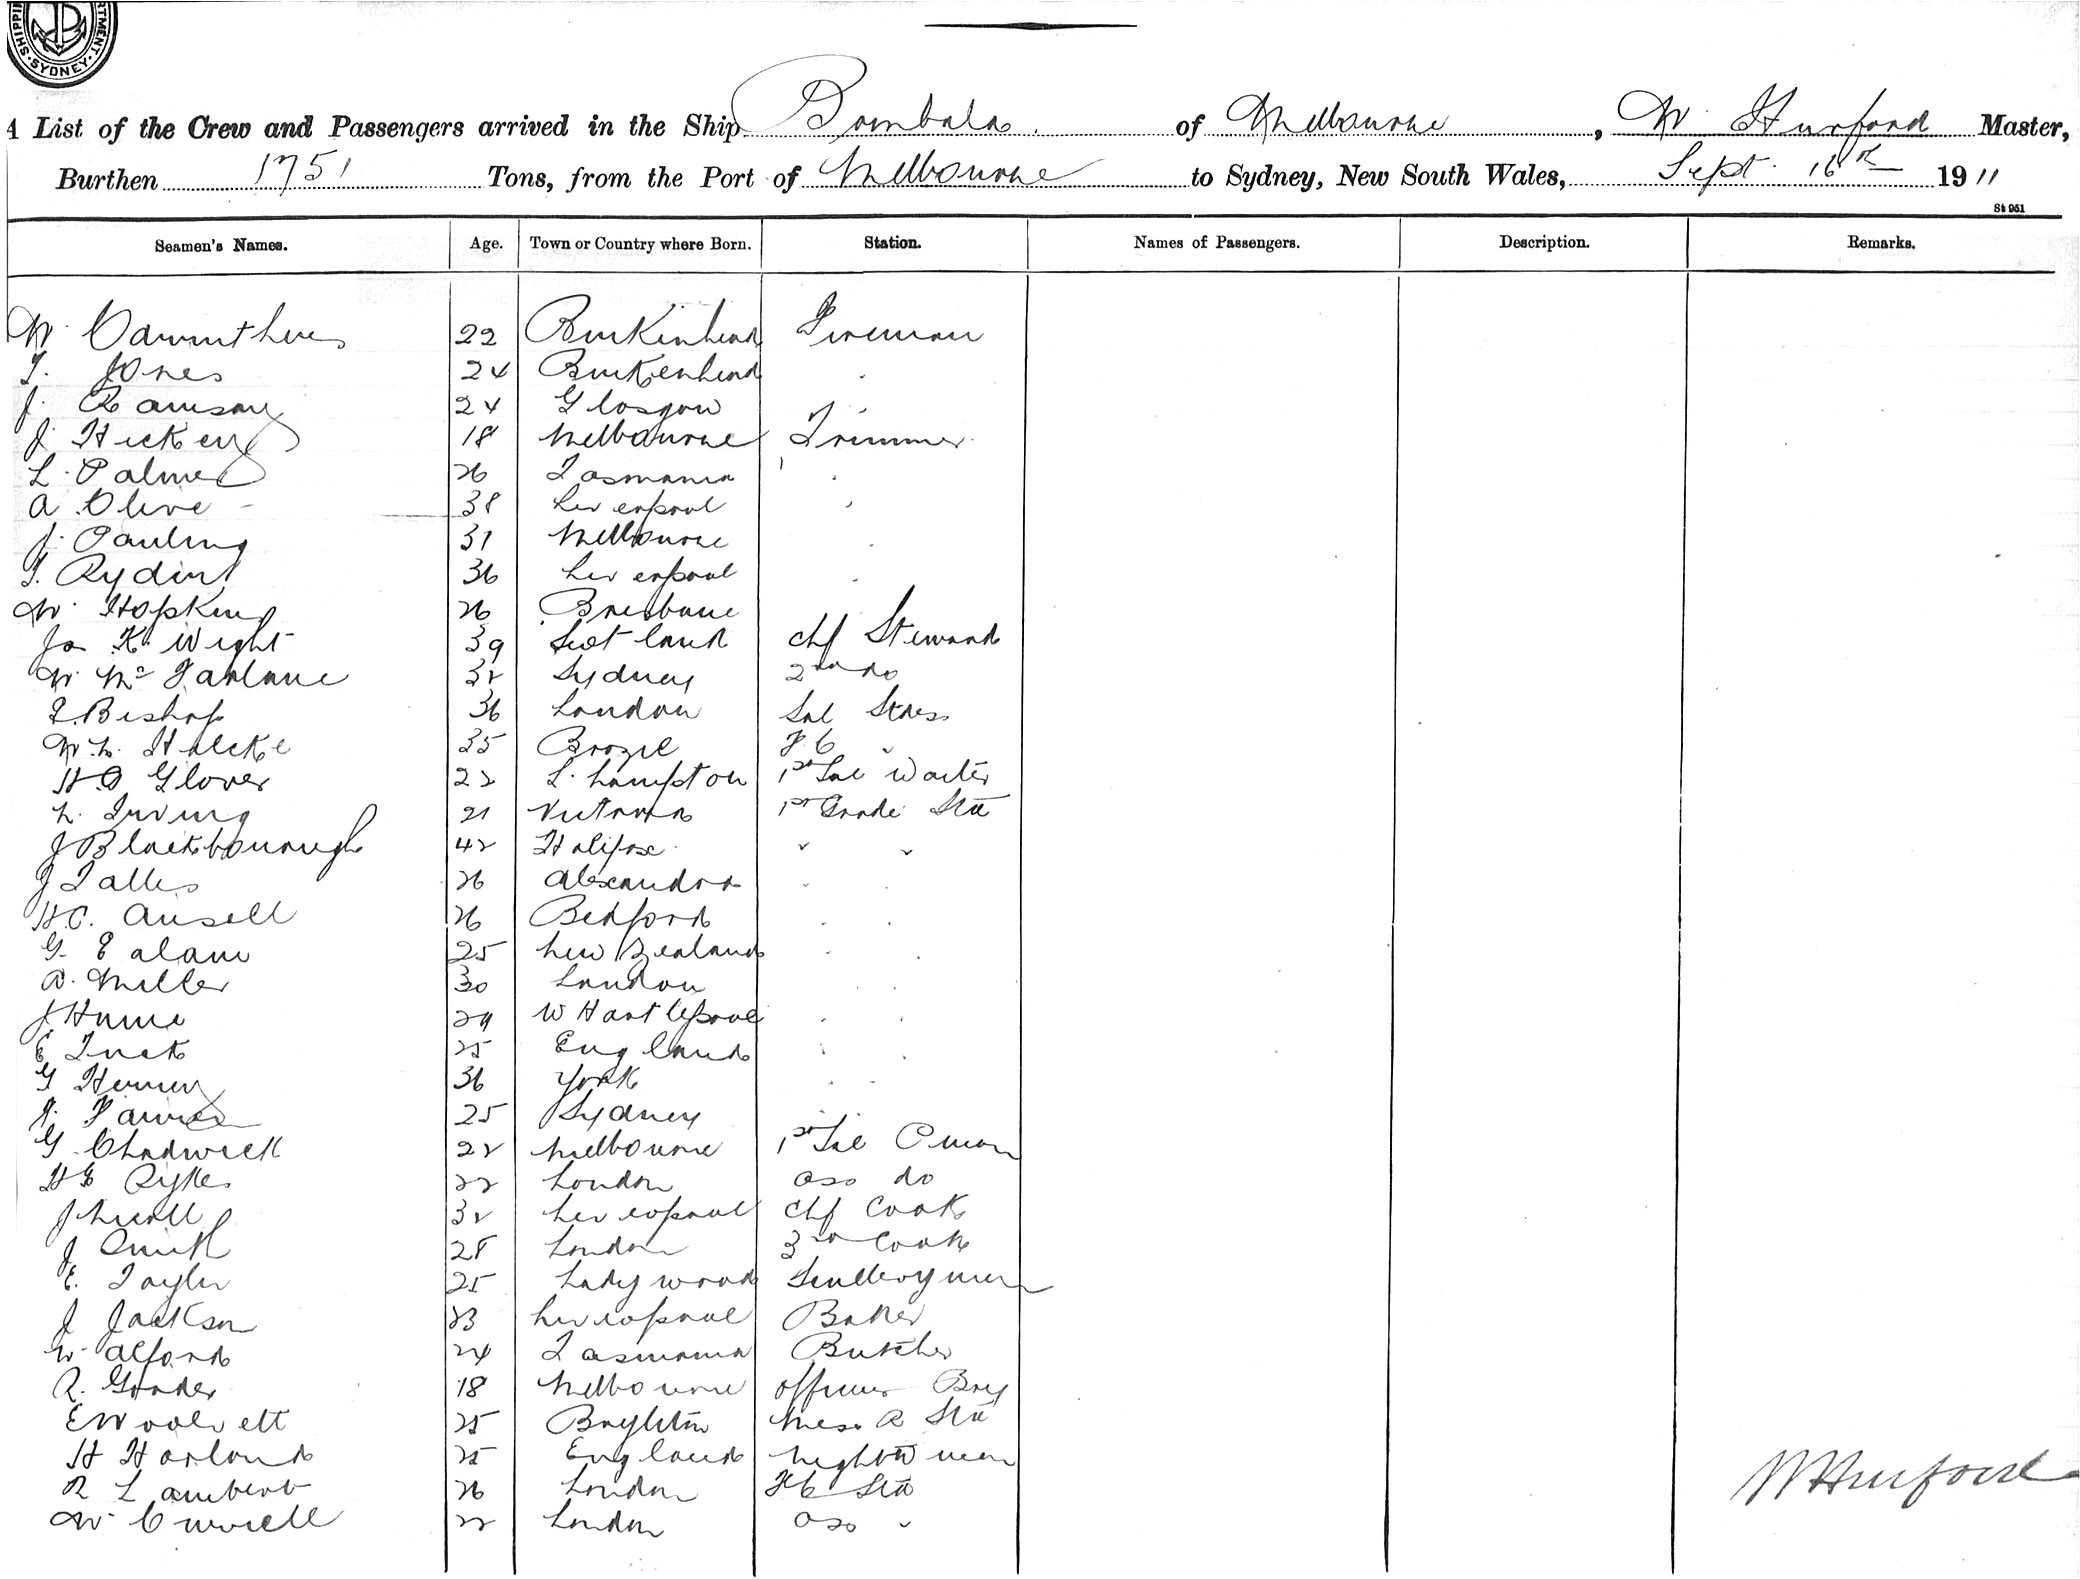 SHIPPI RTMENT SYDNEY
A List of the Crew and Passengers arrived in the Ship Bombala of Melbourne, W. Hurford Master,
Burthen 1751 Tons, from the Port of Melbourne to Sydney, New South Wales, Sept. 16th 1911
St 951
Seamen's Names. Age. Town or Country where Born. Station. Names of Passengers. Description. Remarks.
W. Carruthers 22 Birkinhead Fireman
T. Jones 24 Birkenhead "
J. Ramsay 24 Glasgow "
J. Hickey 18 Melbourne Trimmer
L. Palmer 26 Tasmania "
A. Olive 38 Liverpool "
J. Pauling 31 Melbourne "
T. Ryding 36 Liverpool "
W. Hopkins 26 Brisbane
Jas K. Wight 39 Scotland Chf Steward
W. McFarlane 32 Sydney 2nd do
T. Bishop 36 London Sal Stress
W. L. 35 Brazil F C "
H. O Glover 22 L. hampton 1st Sal Waiter
L. Irving 21 Victoria 1st Grade Std
J Blackbourough 42 Halifax " "
J Talles 26 Alexandra " "
H. C. Ansell 26 Bedford " "
G. Ealam 25 New Zealand " "
A. Miller 30 London " "
J. Hume 29 W Hartlepool " "
E Tuck 25 England " "
G Henry 36 York " "
25 Sydney
G. Chadwick 22 Melbourne 1st Sal Pman
H G Rykes 22 London ass do
J Nicoll 32 Liverpool Chf Cook
J Smith 28 London 3rd Cook
E. Tayler 25 Ladywood Scullerymen
J Jackson 23 Liverpool Baker
W. Alford 24 Tasmania Butcher
R. 18 Melbourne Officers Boy
E Woolvett 25 Brighton Mess R Std
H Harland 25 England Nightwmen
R Lambert 26 London F C Std
W. Currell 22 London ass "
W Hurford